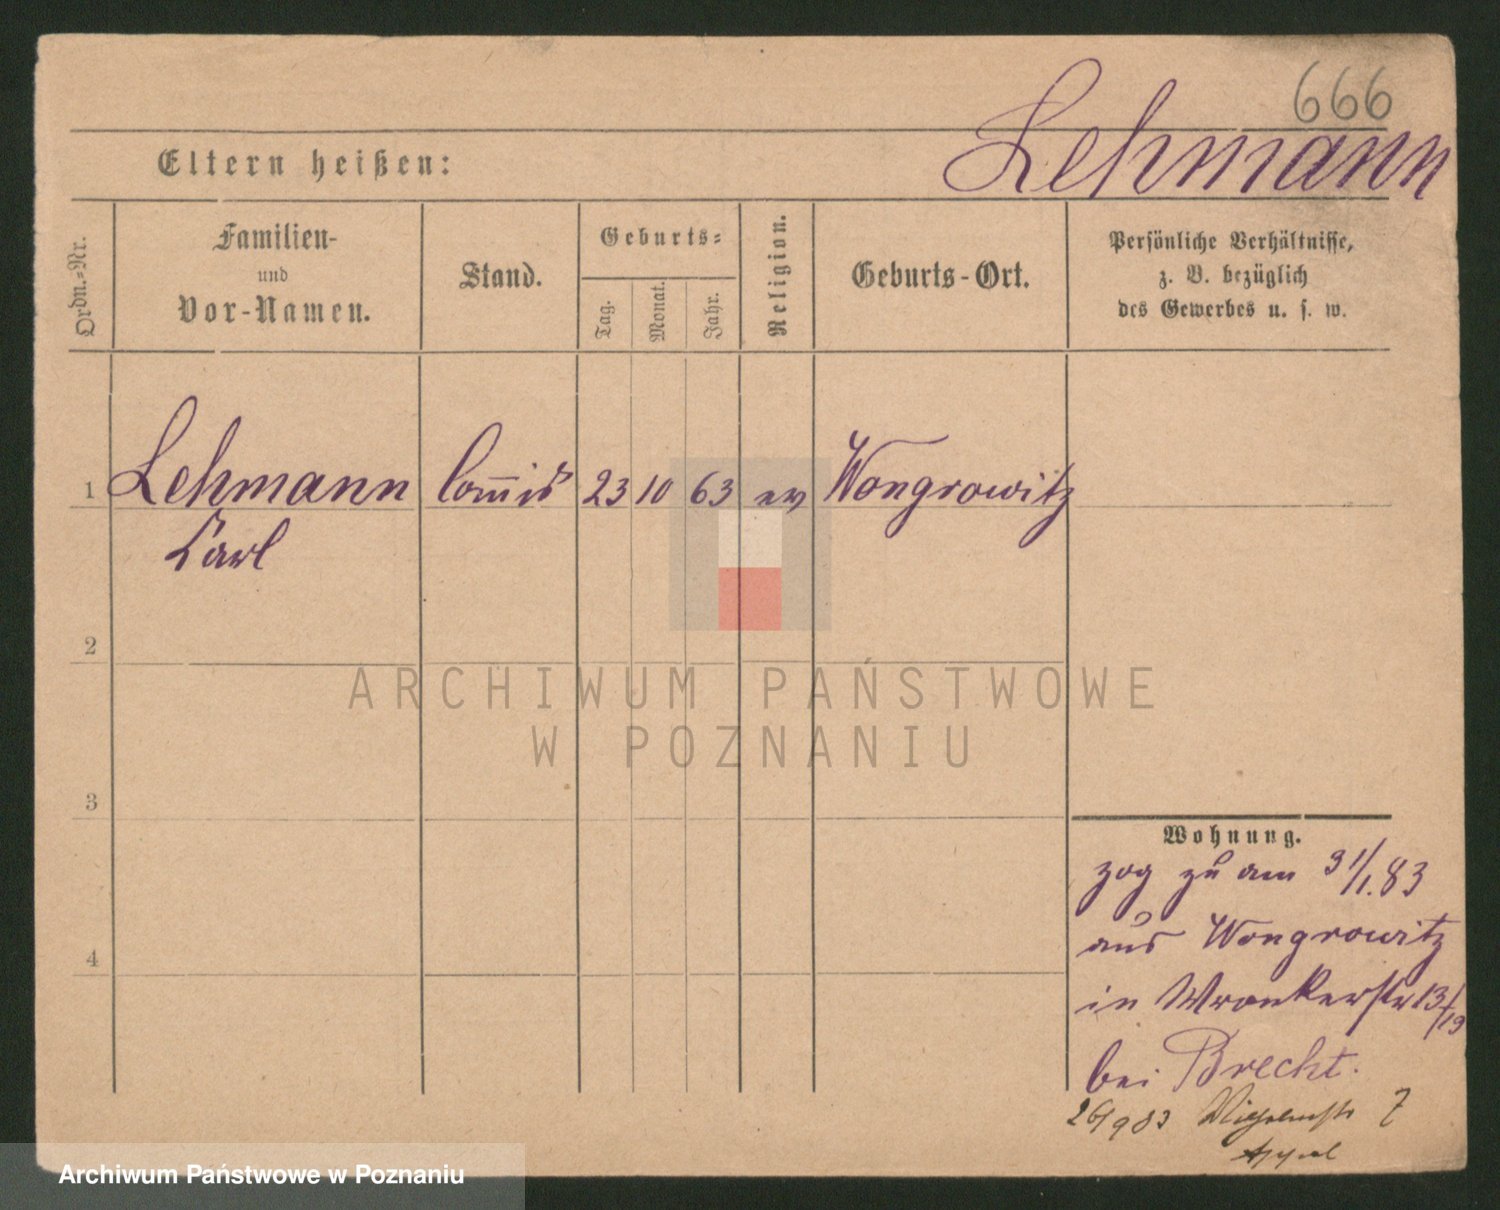 666
Lehmann
Eltern heißen:
Ordn.-Nr.
Familien-
und
Vor-Namen.
Stand.
Geburts-
Tag.
Monat.
Jahr.
Religion.
Geburts-Ort.
Persönliche Verhältnisse,
z. B. bezüglich
des Gewerbes u. s. w.
1 Lehmann Com̅is 23 10 63 ev Wongrowitz
Carl
2
3
4
ARCHIWUM PAŃSTWOWE
W POZNANIU
Wohnung.
zog zu am 31/1.83
aus Wongrowitz
in Wronkerstr 13/19
bei Brecht.
26/9 83 Wilhelmstr 7
Appel
Archiwum Państwowe w Poznaniu